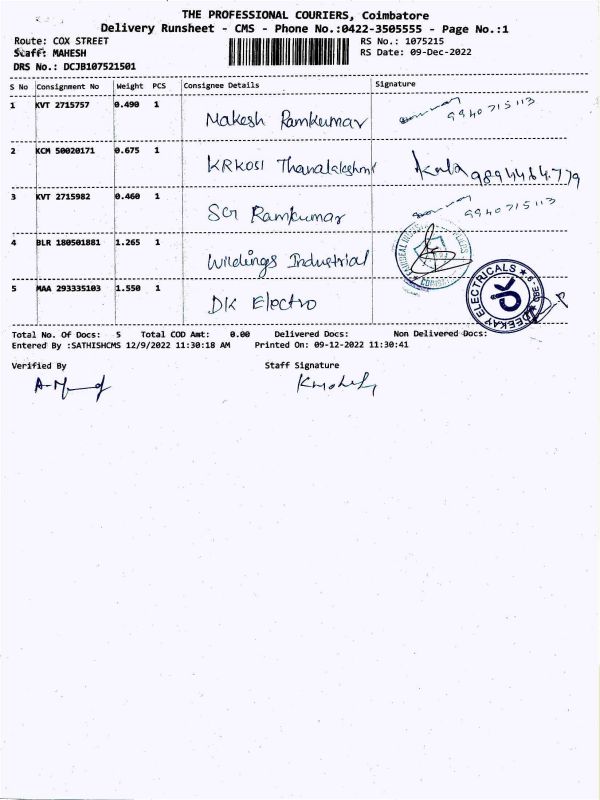 THE PROFESSIONAL COURIERS, Coimbatore
Delivery Runsheet - CMS - Phone No.:0422-3505555 - Page No.:1
Route: COX STREET RS No.: 1075215
Staff: MAHESH RS Date: 09-Dec-2022
DRS No.: DCJB107521501
S No Consignment No Weight PCS Consignee Details Signature
1 KVT 2715757 0.490 1 Makesh Ramkumar 9940715113
2 KCM 50020171 0.675 1 Kala 9894464779
3 KVT 2715982 0.460 1 Ramkumar 9940715113
4 BLR 180501881 1.265 1 Wildings Industrial
5 MAA 293335103 1.550 1 DK Electro
DEEKAY ELECTRICALS
Total No. Of Docs: 5 Total COD Amt: 0.00 Delivered Docs: Non Delivered Docs:
Entered By :SATHISHCMS 12/9/2022 11:30:18 AM Printed On: 09-12-2022 11:30:41
Verified By Staff Signature